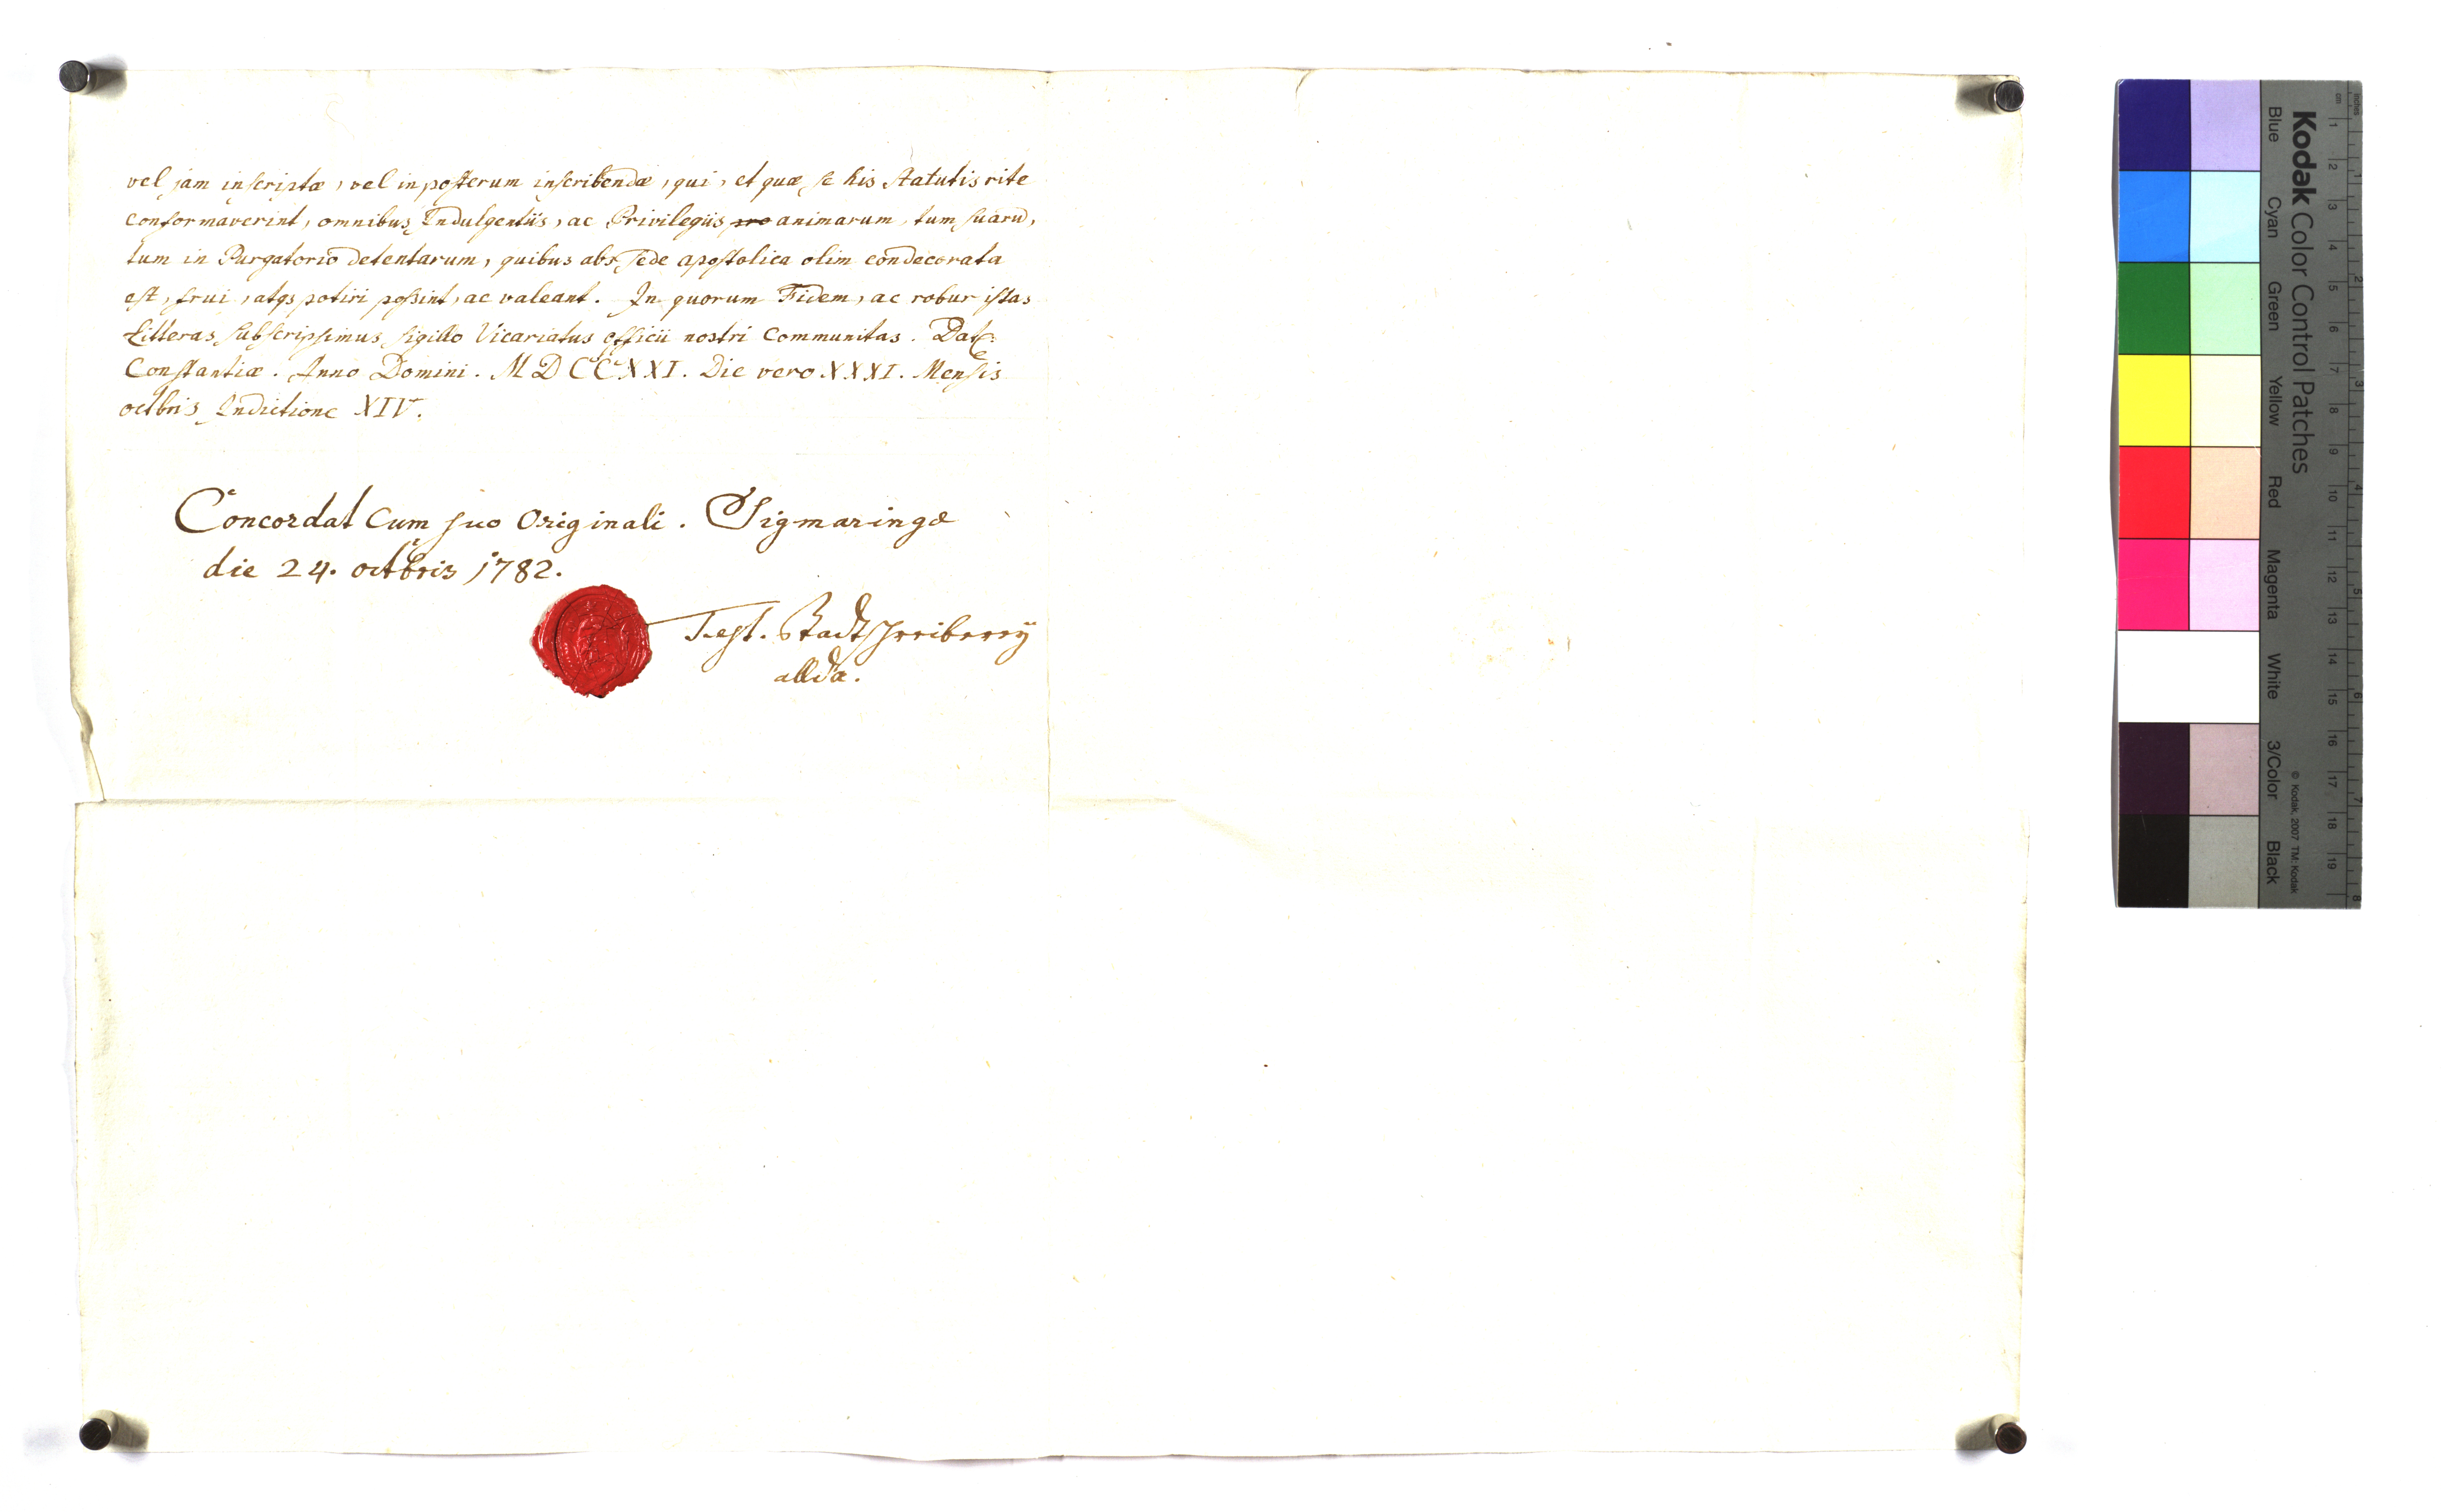 vel jam inscriptæ, vel in posterum inscribendæ, qui, et quæ se his statutis rite
conformaverint, omnibus Indulgentiis, ac Privilegiis pro animarum, tum suarū,
tum in Purgatorio detentarum, quibus abs sede apostolica olim condecorata
est, frui, atqs potiri possint, ac valeant. In quorum Fidem, ac robur istas
Litteras subscripsimus sigillo Vicariatus officii nostri communitas. Dat:
Constantiæ. Anno Domini. MDCCXXI. Die vero XXXI. Mensis
octbris Indictione XIV.
Concordat cum suo Originali. Sigmaringæ
die 24. octbris 1782.
Test. Stadtschreiberey
allda.
Kodak Color Control Patches
Blue Cyan Green Yellow Red Magenta White 3/Color Black
© Kodak, 2007 TM: Kodak
inches 1 2 3 4 5 6 7 8
cm 1 2 3 4 5 6 7 8 9 10 11 12 13 14 15 16 17 18 19